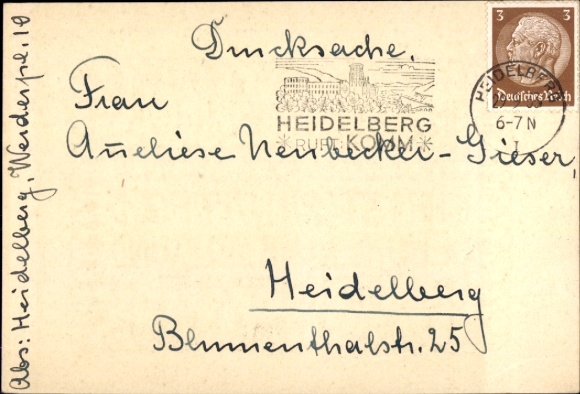 Drucksache.
3 3
Deutsches Reich
HEIDELBERG
6-7 N
HEIDELBERG
*RUFT: KOMM*
Frau
Anneliese Neubecker-Gieser,
Heidelberg
Blumenthalstr. 25
Abs: Heidelberg, Werderpl. 10